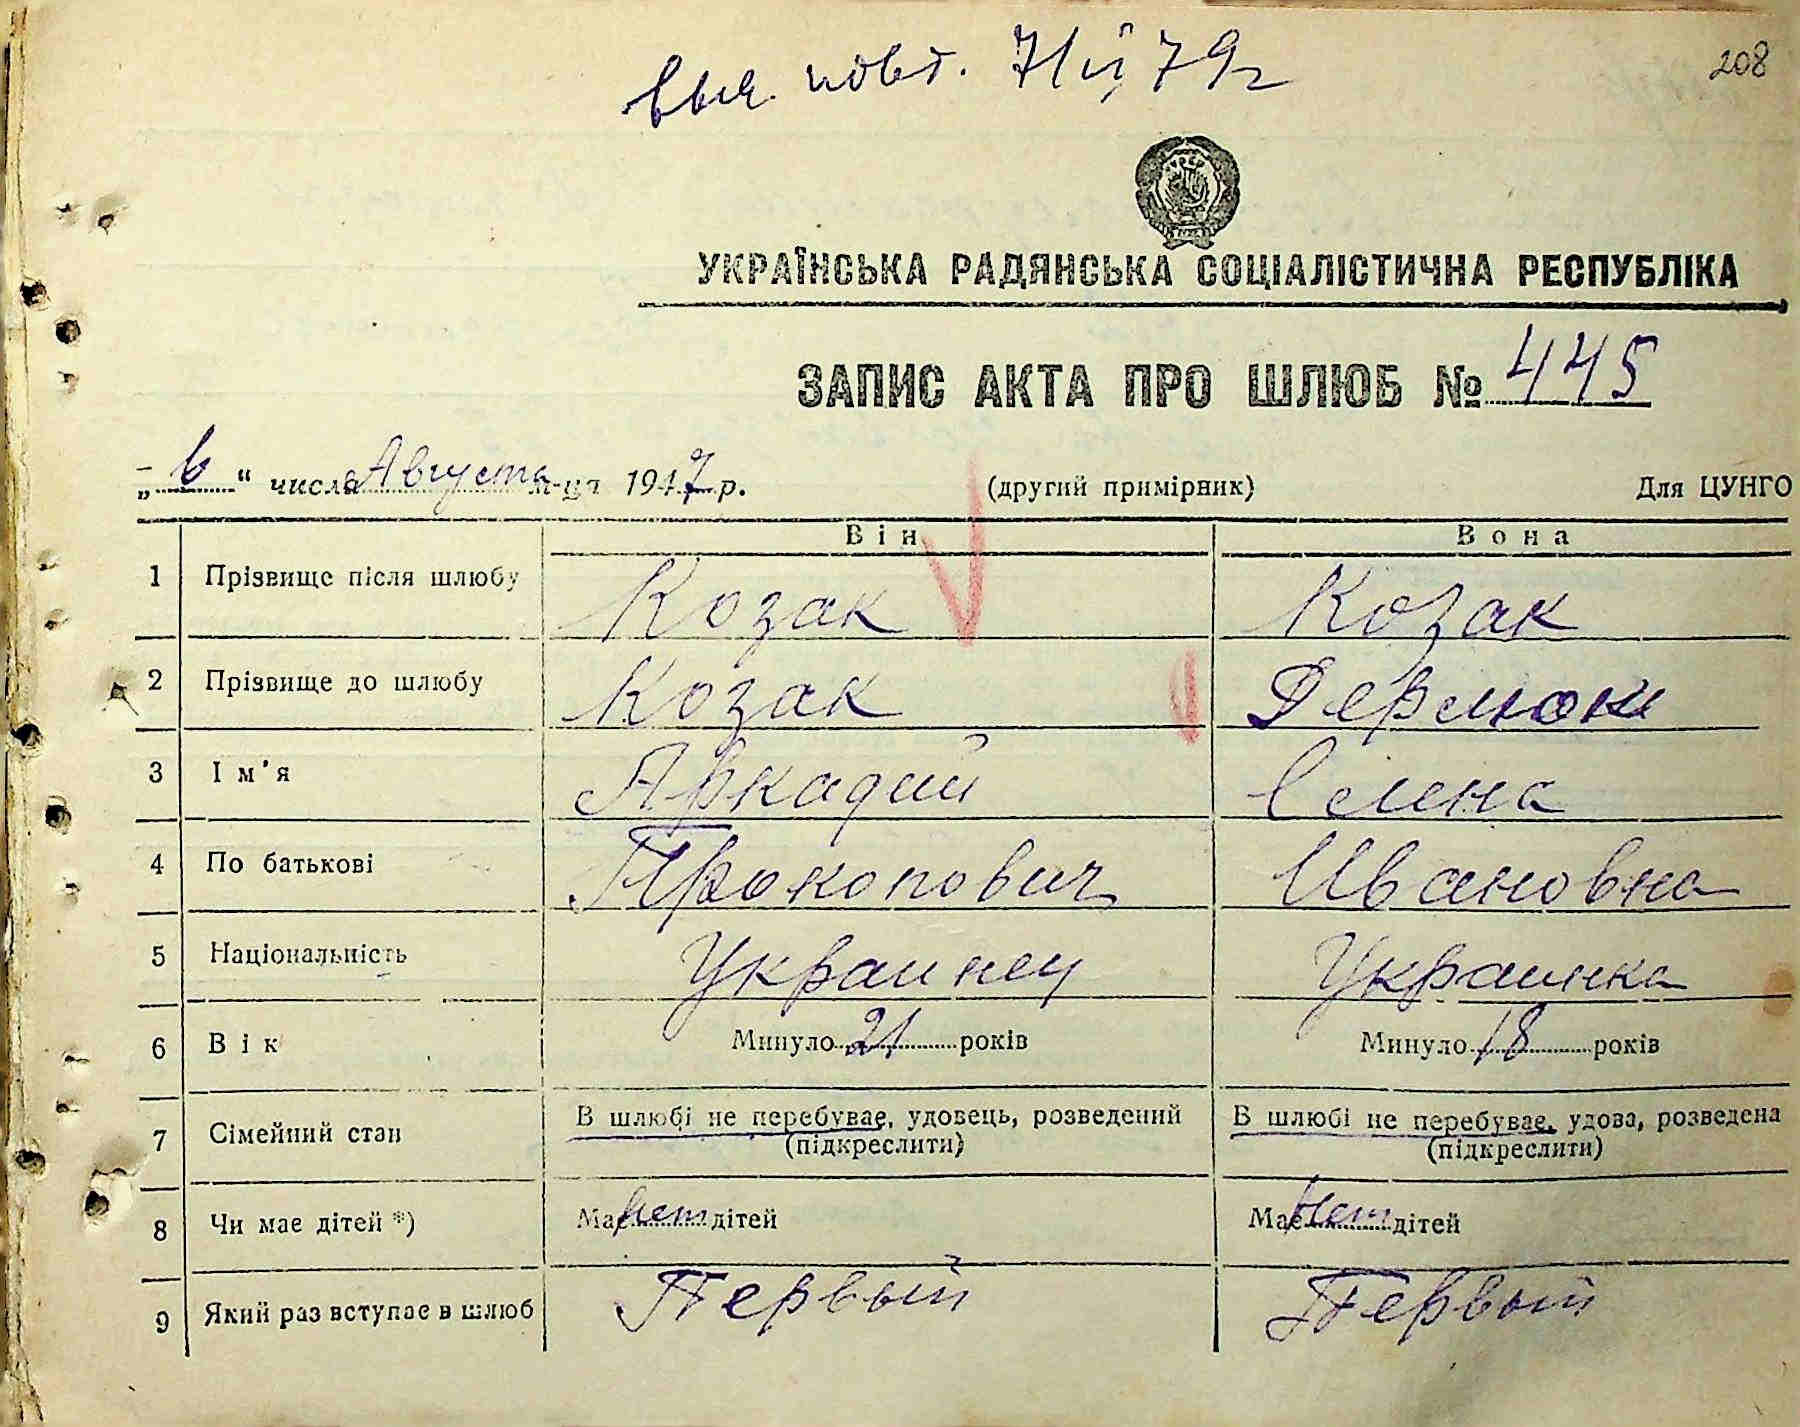 208
УКРАЇНСЬКА РАДЯНСЬКА СОЦІАЛІСТИЧНА РЕСПУБЛІКА
ЗАПИС АКТА ПРО ШЛЮБ № 445
„6“ числа Августа м-ця 1947 р. (другий примірник) Для ЦУНГО
Він Вона
1 Прізвище після шлюбу Козак Козак
2 Прізвище до шлюбу Козак
3 Ім'я Аркадий Елена
4 По батькові Прокопович Ивановна
5 Національність Украинец Украинка
6 Вік Минуло 21 років Минуло 18 років
7 Сімейний стан В шлюбі не перебуває, удовець, розведений В шлюбі не перебуває, удова, розведена
(підкреслити) (підкреслити)
8 Чи має дітей *) Має нет дітей Має нет дітей
9 Який раз вступає в шлюб Первый Первый